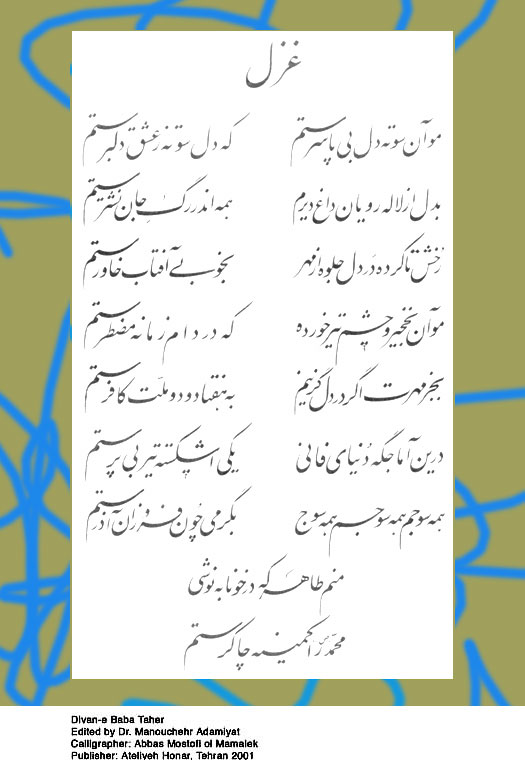 غزل
موآن سوته دل بی پا سرستم که دل سوته ز عشق دلبرستم
بدل از لاله رویان داغ دیرم همه اندر رگ جان نشترستم
رخش تا کرده در دل جلوه از مهر بخوبی آفتاب خاورستم
موآن نخجیر و چشم تیر خورده که در دام زمانه مضطرستم
بجز مهرت اگر در دل گزینم به هفتاد و دو ملت کافرستم
درین آماجگه دنیای فانی یکی اشکسته تیر بی پرستم
همه سوجم همه سوجم همه سوج بگرمی چون فروزان آذرستم
منم طاهر که در خونابه نوشی
محمد را کمینه چاکرستم
Divan-e Baba Taher
Edited by Dr. Manouchehr Adamiyat
Calligrapher: Abbas Mostofi ol Mamalek
Publisher: Ateliyeh Honar, Tehran 2001